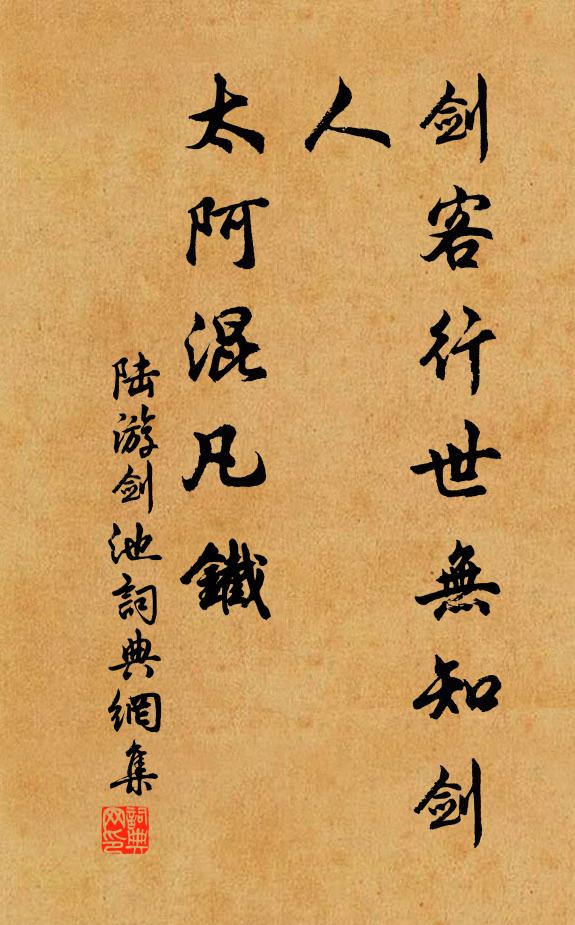 剑客行世無知剑
人
太阿混凡鐵
陆游剑池詞典網集
詞典
网印